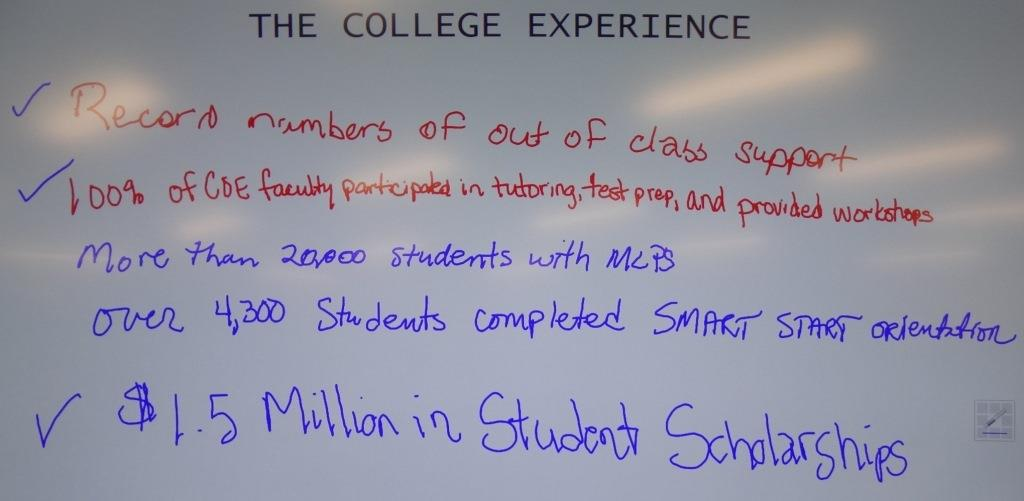 THE COLLEGE EXPERIENCE
Record numbers of out of class support
100% of COE faculty participated in tutoring, test prep, and provided workshops
More than 20,000 students with MLPS
over 4,300 Students completed SMART START orientation
$1.5 Million in Student Scholarships